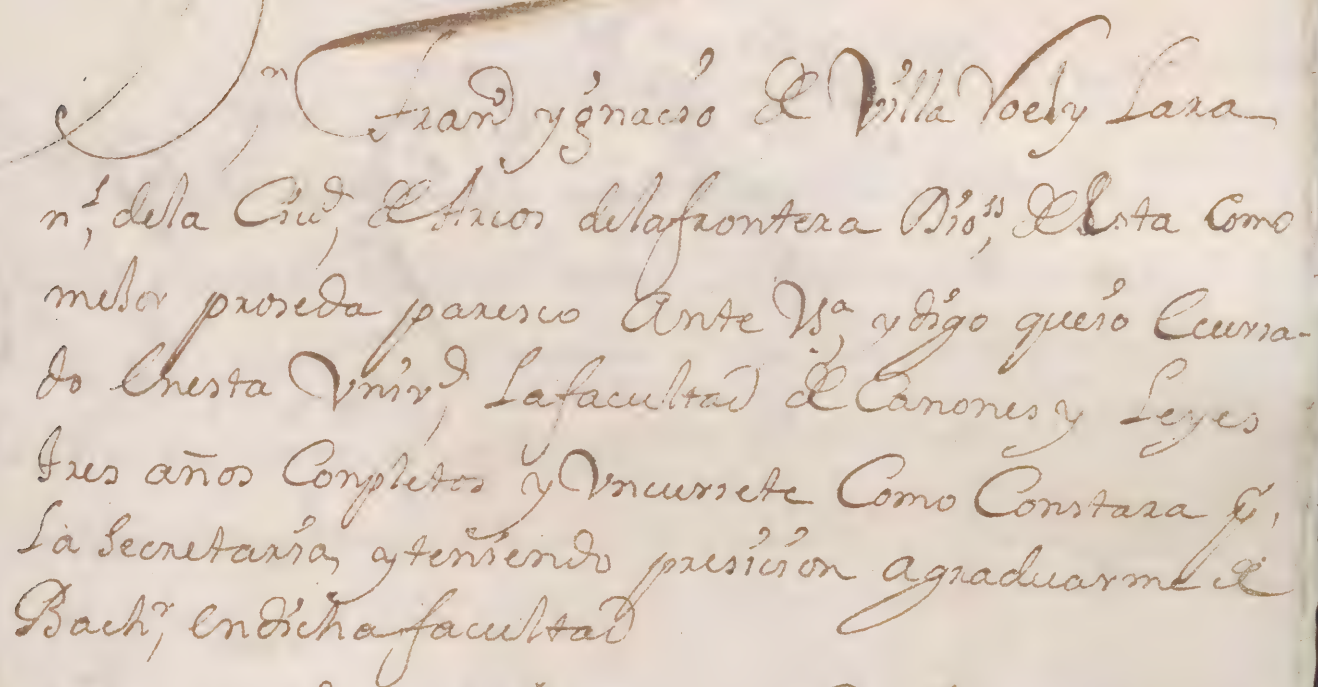 Dn, Franco ygnacio de Villa Voel y Lara
nl, dela Ciud, de Arcos delafrontera Dioss, de Esta como
mesor proseda paresco Ante Vsa, y digo que io Ecursa-
do Enesta Vnivd, Lafacultad de Canones y Leyes
tres años Conpletos y Vncursete Como Constara pr,
La Secretaria, y teniendo presision agraduarme de
Bachr, Endicha facultad